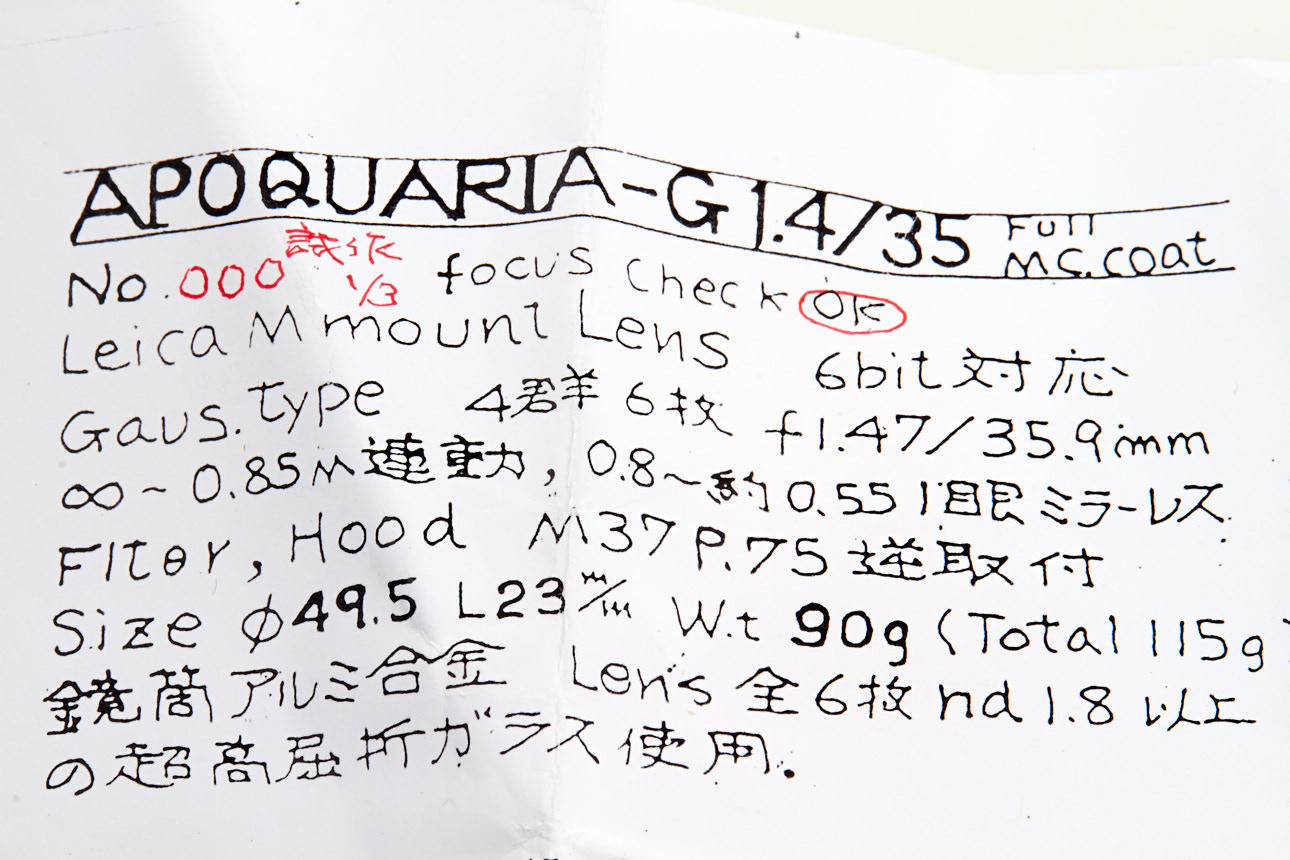 APOQUARIA-G 1.4/35 Full MC.coat
No.000 試作 1/3 focus check OK
Leica M mount Lens 6bit 対応
Gaus.type 4群 6枚 f1.47/35.9mm
∞~0.85M連動, 0.8~約0.55 1眼ミラーレス
Flter, Hood M37 P.75 逆取付
Size φ49.5 L23 m/m W.t 90g (Total 115g)
鏡筒アルミ合金 Lens 全6枚 nd 1.8 以上
の超高屈折ガラス使用.